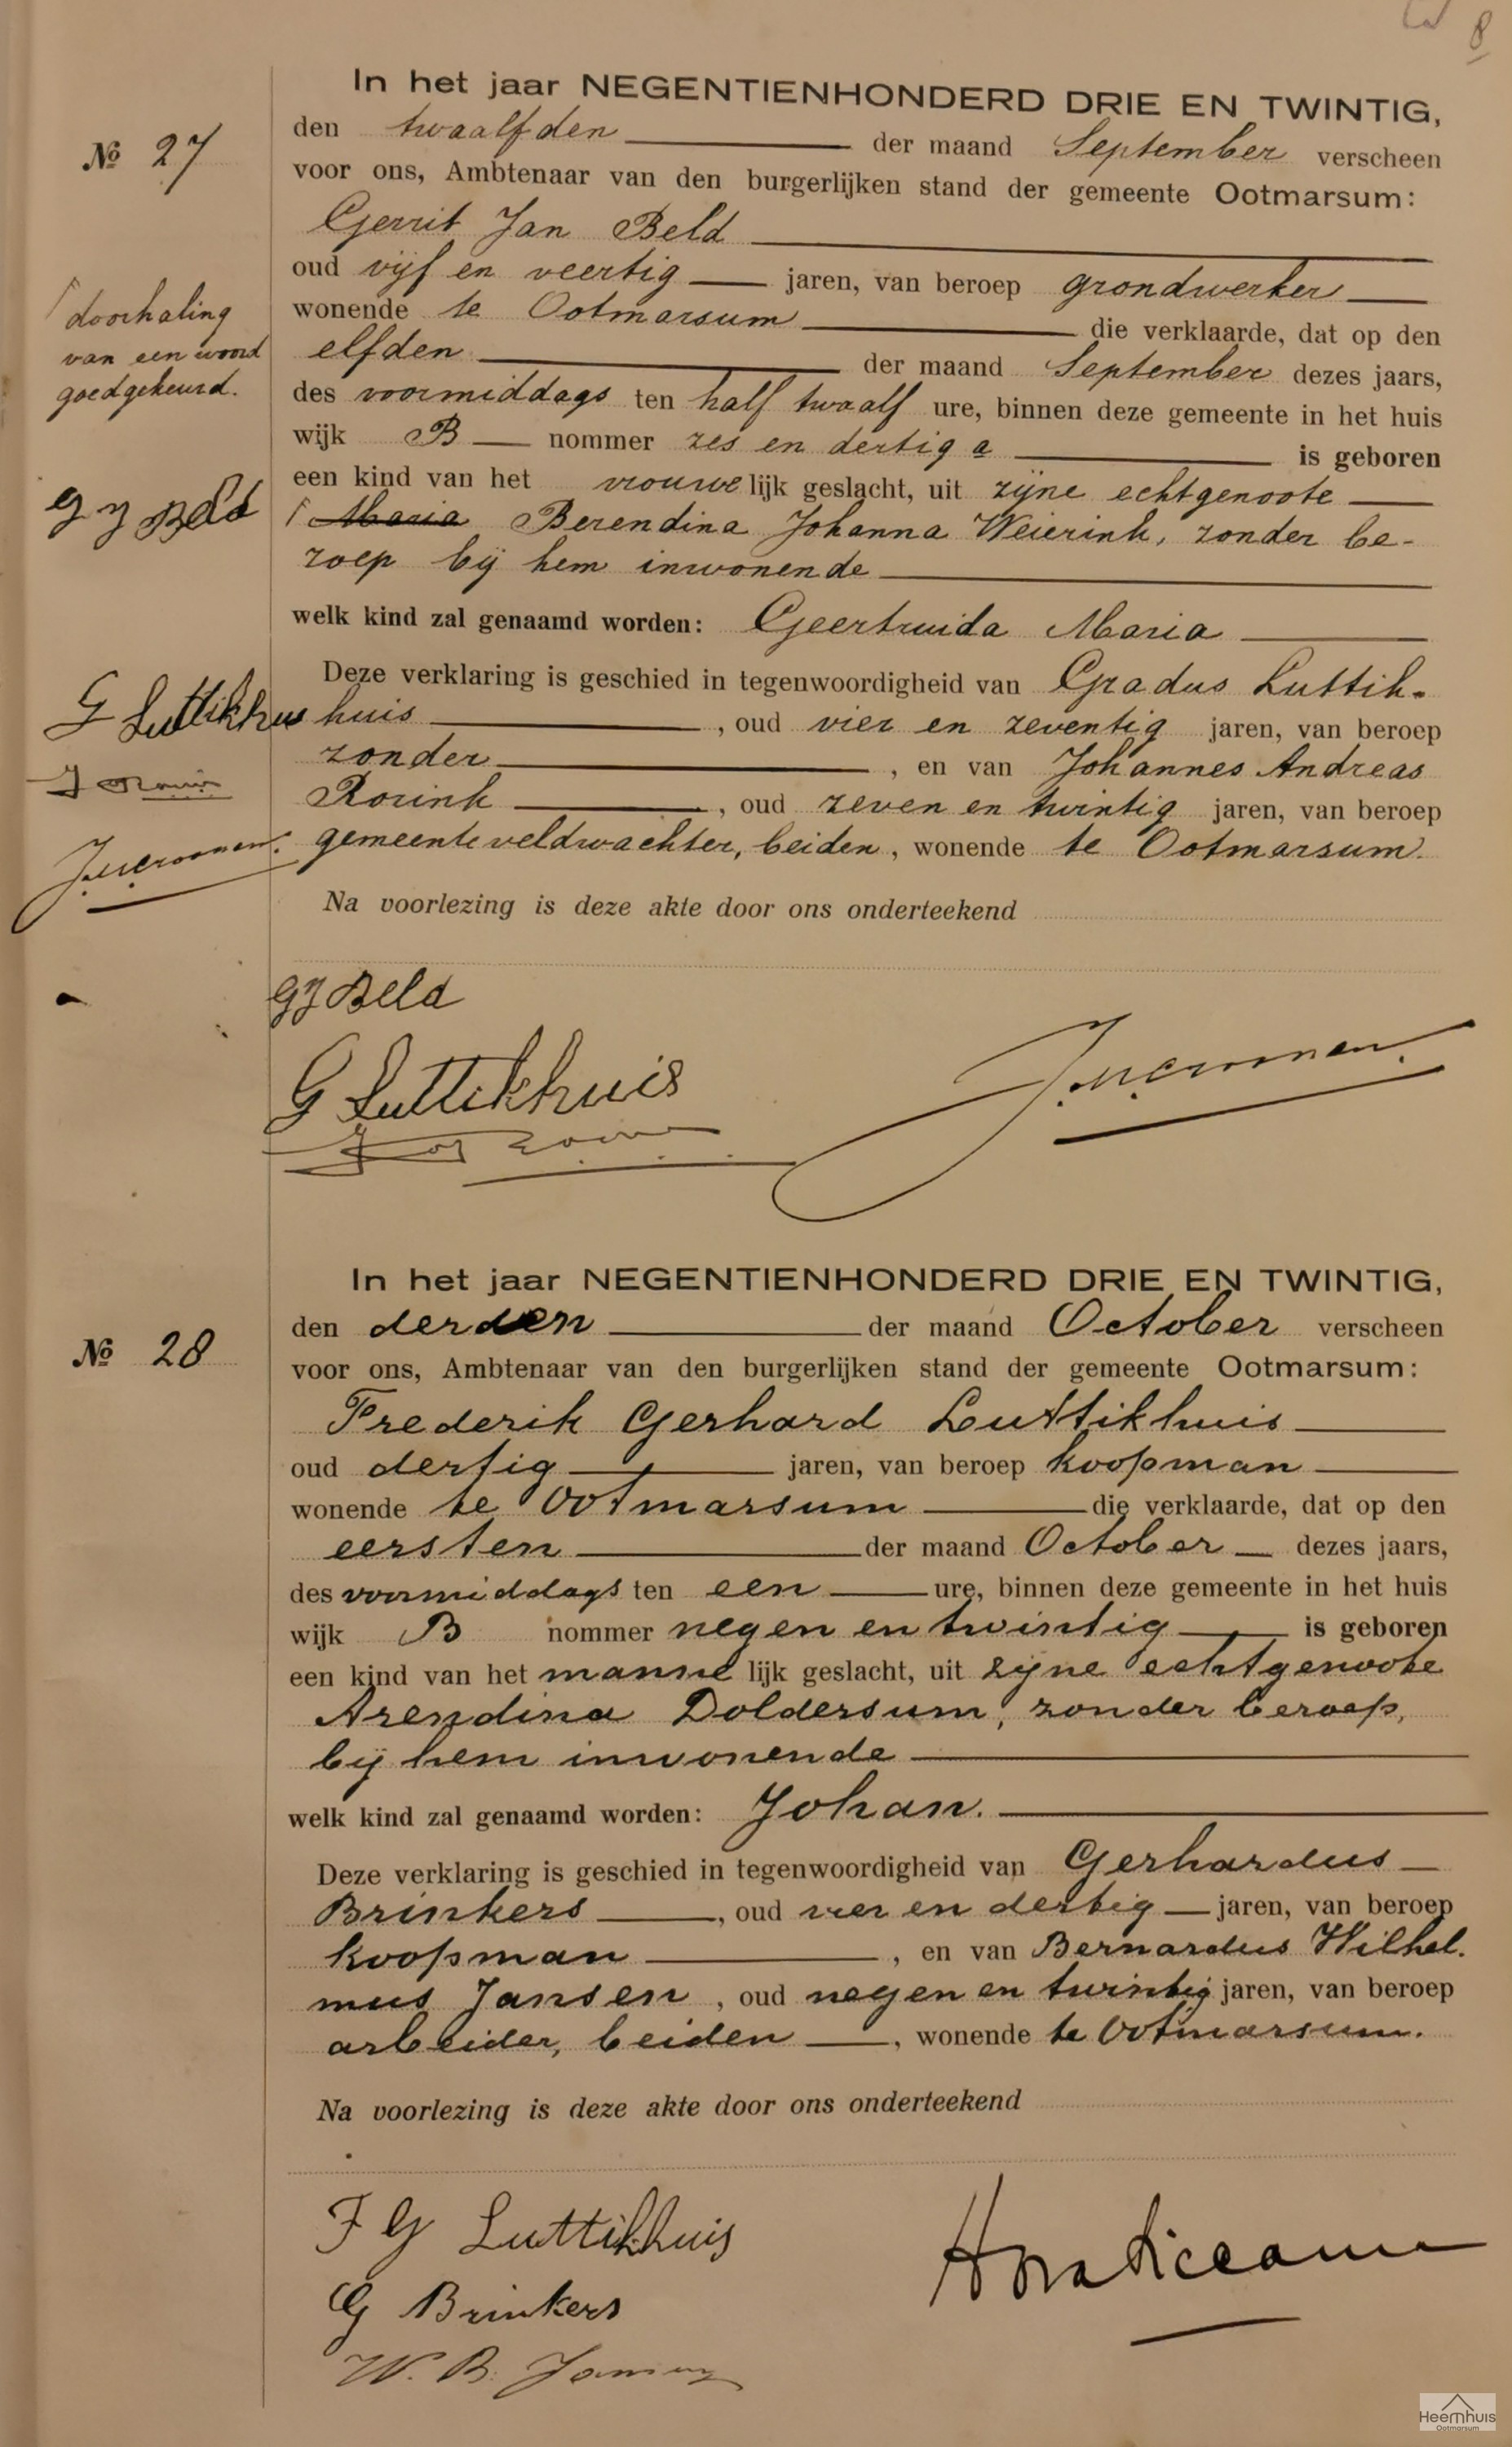 8
In het jaar NEGENTIENHONDERD DRIE EN TWINTIG,
№ 27
den twaalfden der maand September verscheen
voor ons, Ambtenaar van den burgerlijken stand der gemeente Ootmarsum:
Gerrit Jan Beld
oud vijf en veertig jaren, van beroep grondwerker
wonende te Ootmarsum die verklaarde, dat op den
elfden der maand September dezes jaars,
des voormiddags ten half twaalf ure, binnen deze gemeente in het huis
wijk B nommer zes en dertig a is geboren
een kind van het vrouwelijk geslacht, uit zijne echtgenoote
Maria Berendina Johanna Weierink, zonder be-
roep bij hem inwonende
welk kind zal genaamd worden: Geertruida Maria
Deze verklaring is geschied in tegenwoordigheid van Gradus Luttik-
huis, oud vier en zeventig jaren, van beroep
zonder, en van Johannes Andreas
Rouink, oud zeven en twintig jaren, van beroep
gemeenteveldwachter, beiden, wonende te Ootmarsum.
Na voorlezing is deze akte door ons onderteekend
doorhaling
van een woord
goedgekeurd.
G J Beld
G Luttikhuis
GJ Beld
G Luttikhuis
In het jaar NEGENTIENHONDERD DRIE EN TWINTIG,
№ 28
den derden der maand October verscheen
voor ons, Ambtenaar van den burgerlijken stand der gemeente Ootmarsum:
Frederik Gerhard Luttikhuis
oud dertig jaren, van beroep koopman
wonende te Ootmarsum die verklaarde, dat op den
eersten der maand October dezes jaars,
des voormiddags ten een ure, binnen deze gemeente in het huis
wijk B nommer negen en twintig is geboren
een kind van het mannelijk geslacht, uit zijne echtgenoote
Arendina Doldersum, zonder beroep,
bij hem inwonende
welk kind zal genaamd worden: Johan.
Deze verklaring is geschied in tegenwoordigheid van Gerhardus
Brinkers, oud vier en dertig jaren, van beroep
koopman, en van Bernardus Wilhel-
mus Jansen, oud negen en twintig jaren, van beroep
arbeider, beiden, wonende te Ootmarsum.
Na voorlezing is deze akte door ons onderteekend
F G Luttikhuis
G Brinkers
W. B. Jansen
Heemhuis
Ootmarsum